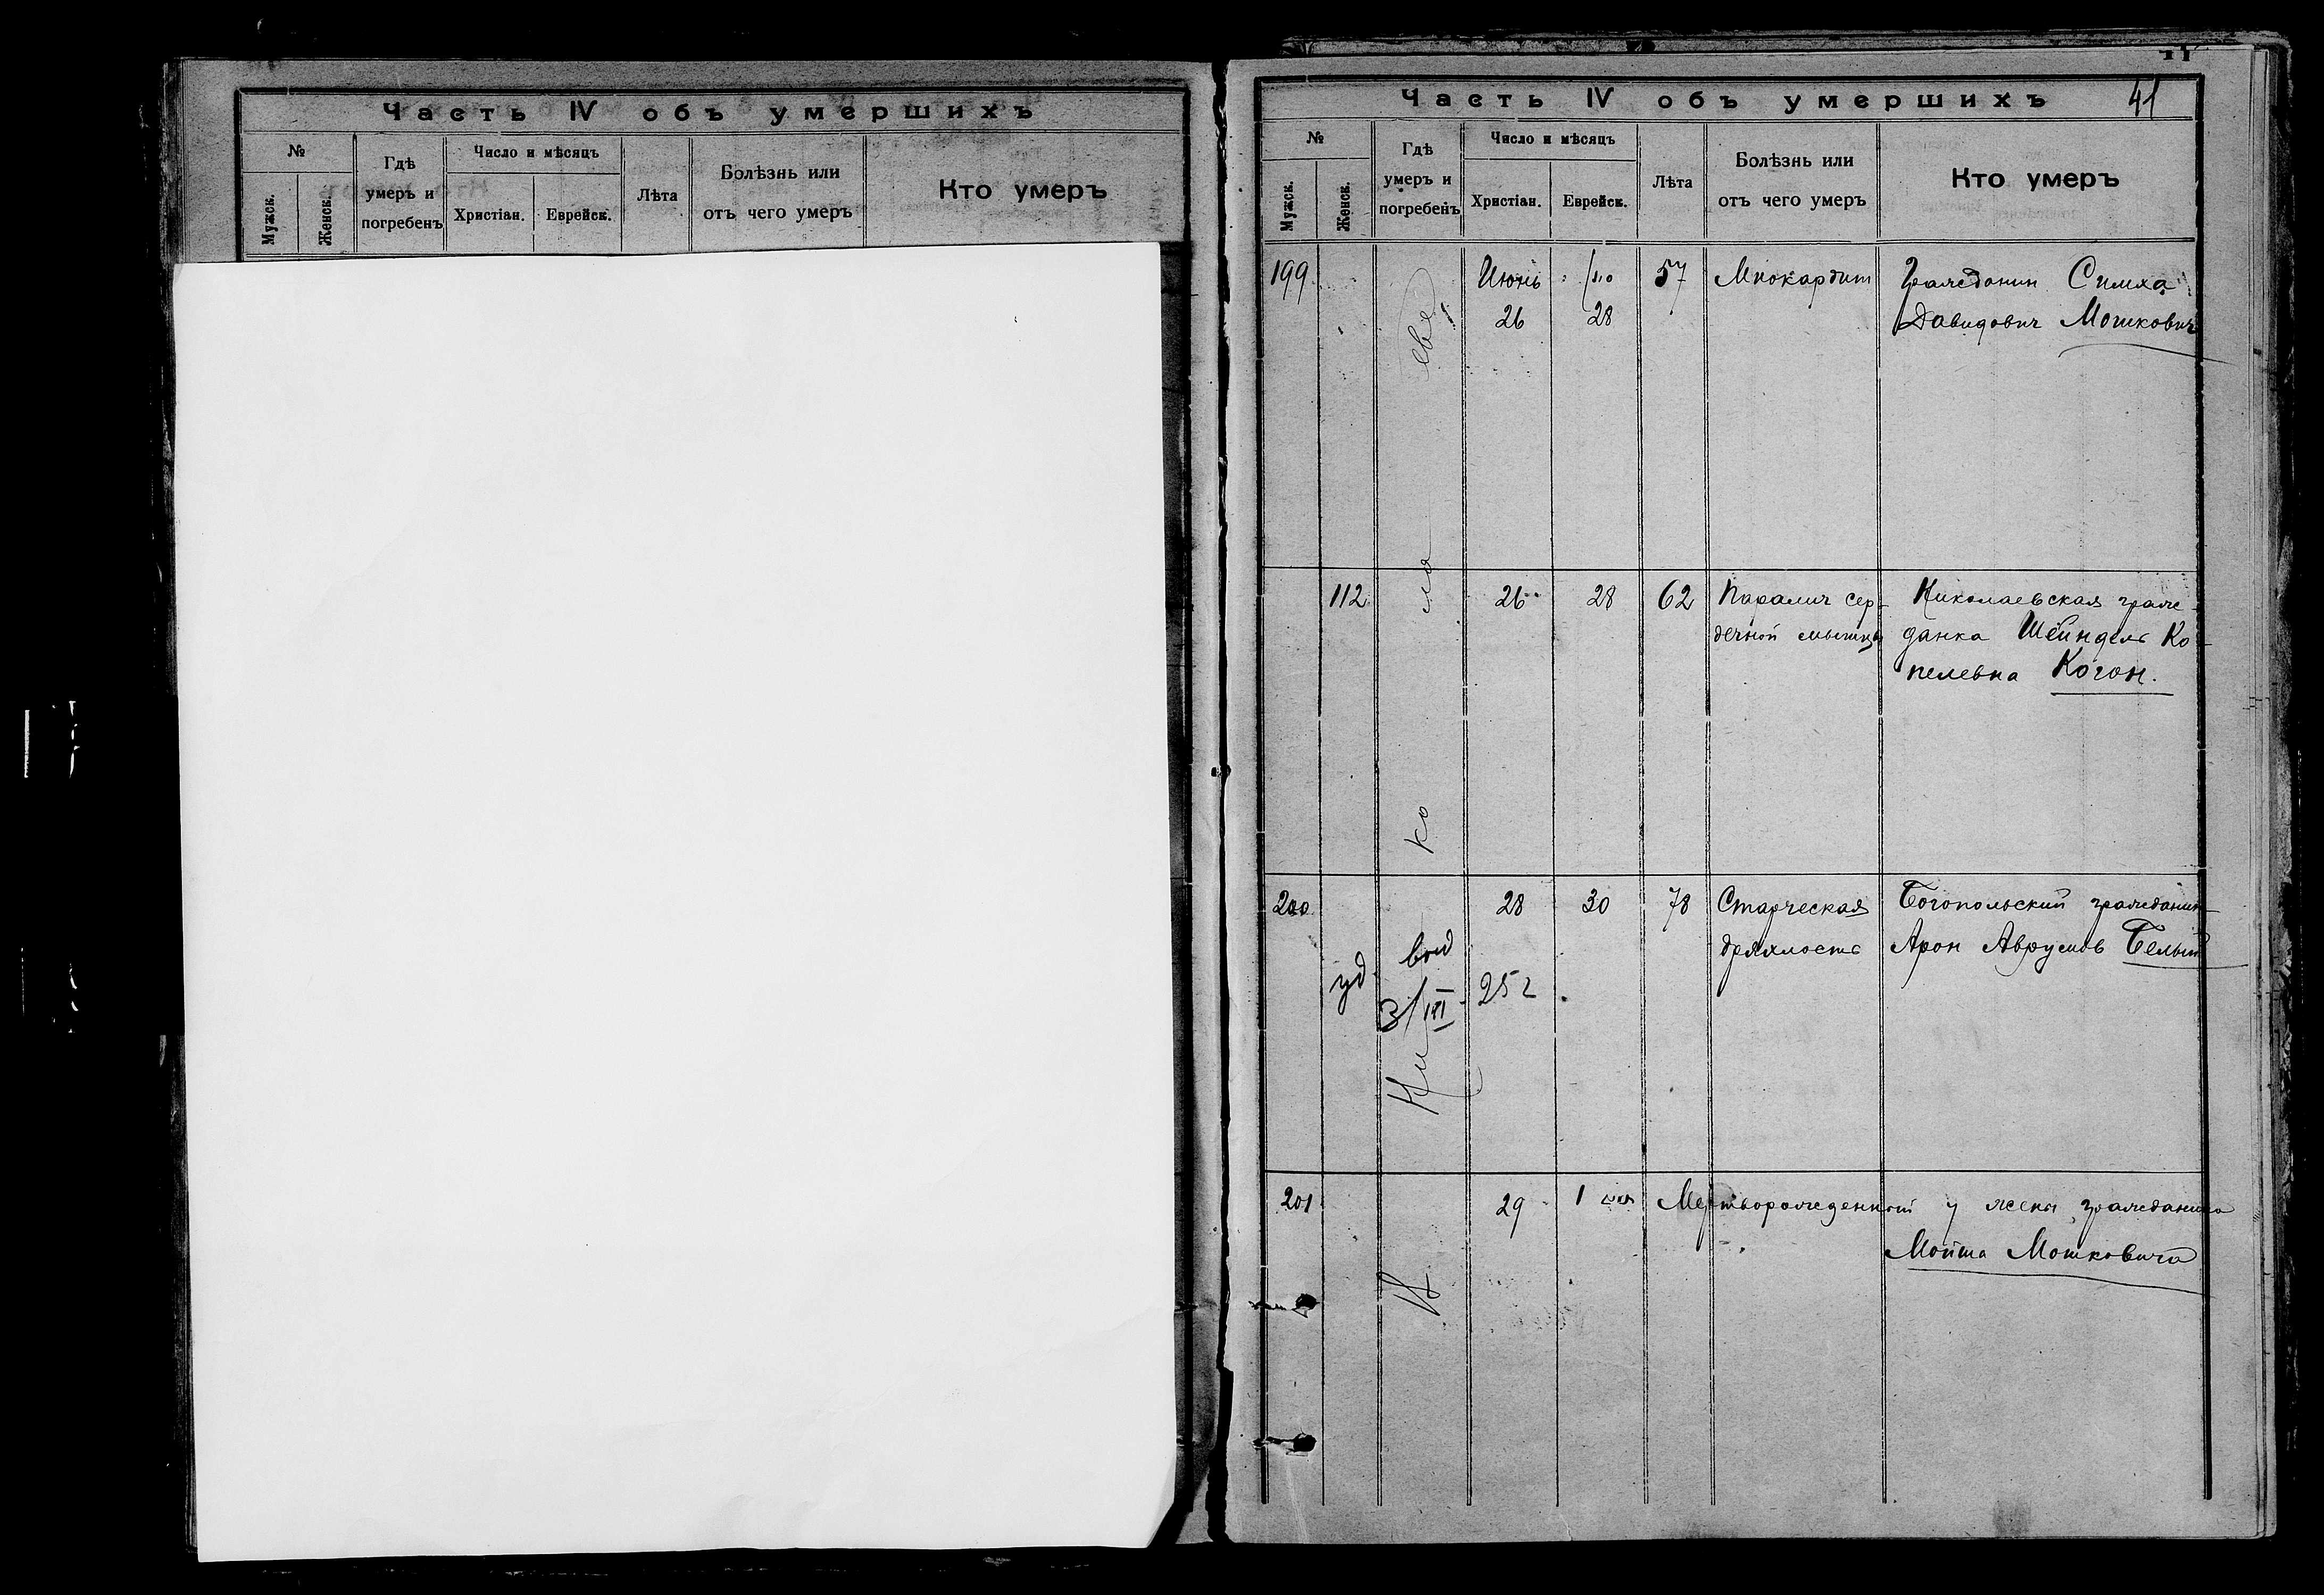 Часть IV объ умершихъ
№
Гдѣ умеръ и погребенъ
Число и мѣсяцъ
Лѣта
Болѣзнь или отъ чего умеръ
Кто умеръ
Мужск.
Женск.
Христіан.
Еврейск.
Часть IV объ умершихъ 41
№
Гдѣ умеръ и погребенъ
Число и мѣсяцъ
Лѣта
Болѣзнь или отъ чего умеръ
Кто умеръ
Мужск.
Женск.
Христіан.
Еврейск.
199 Июнь 57 Миокардит Гражданин Симха
26 28 Давидович Мошкович
112 26 28 62 Паралич сер- Николаевская граж-
дечной мышцы данка Шейндель Ко-
пелевна Коган.
200 28 30 78 Старческая Богопольский гражданин
дряхлость Арон Аврумов Белый
уд выд
3/III 25 г.
201 29 1 Мертворожденный у жены гражданина
Мойша Мошковича
В Николаеве